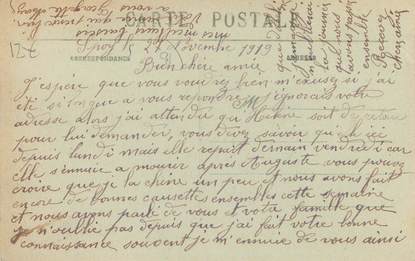 CARTE POSTALE
CORRESPONDANCE
ADRESSE
122
Spoy 27 Novembre 1919
Bien chère amie
J'espère que vous voudrez bien m'excusez si j'ai
été si longue a vous repondre j'ignorais votre
adresse Alors j'ai attendu qu'Hélène soit de retour
pour lui demander, vous devez savoir qu'elle est ici
depuis lundi mais elle repart demain vendredi car
elle s'ennuie a mourir après Auguste vous pouvez
croire que je la chine un peu et nous avons fait
encore de bonnes causettes ensembles cette semaine
et nous avons parlé de vous et votre famille que
je n'oublie pas depuis que j'ai fait votre bonne
connaissance souvent je m'ennuie de vous ainsi
mes meilleurs baisers
que nous
avons passés
ensemble
Recevez
chère amie